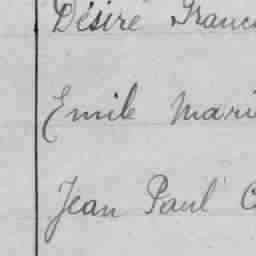 Désiré Franc
Emile Mari
Jean Paul